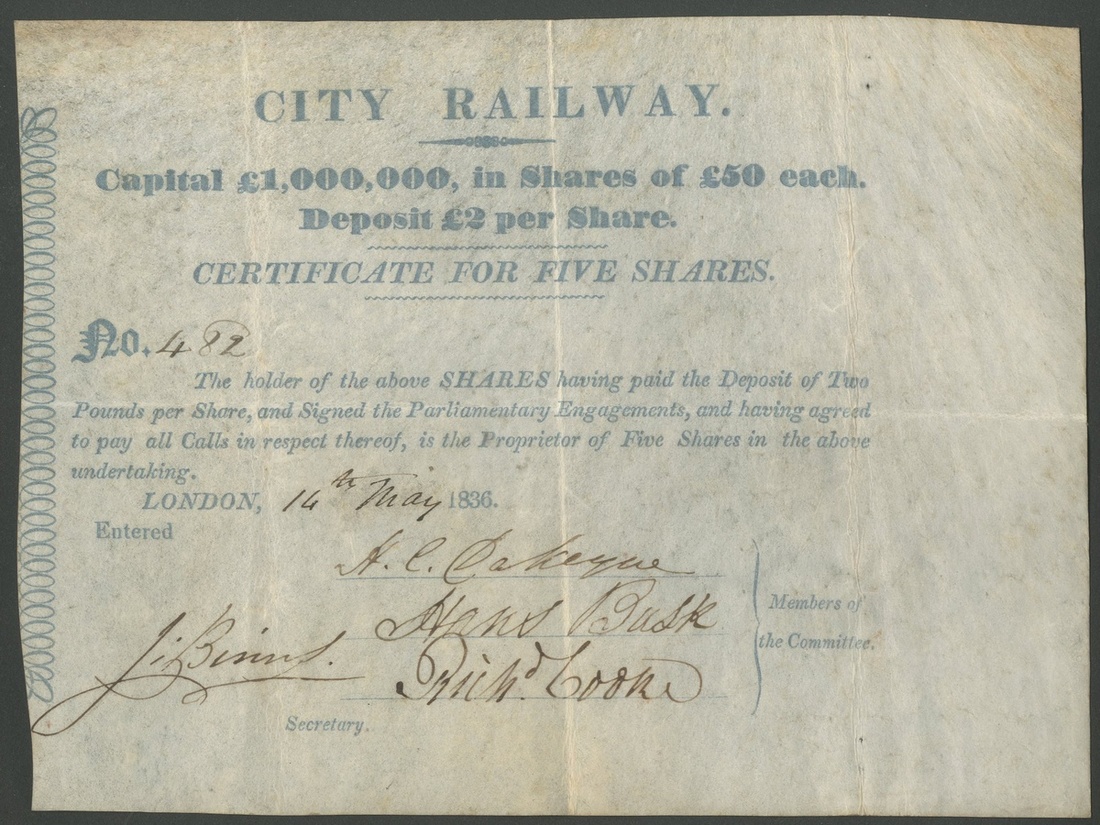 CITY RAILWAY.
Capital £1,000,000, in Shares of £50 each.
Deposit £2 per Share.
CERTIFICATE FOR FIVE SHARES.
No. 482
The holder of the above SHARES having paid the Deposit of Two
Pounds per Share, and Signed the Parliamentary Engagements, and having agreed
to pay all Calls in respect thereof, is the Proprietor of Five Shares in the above
undertaking.
LONDON, 14th May 1836.
Entered
H. C.
Hans Busk
Members of
the Committee.
J. Binns.
Richd. Cooke
Secretary.